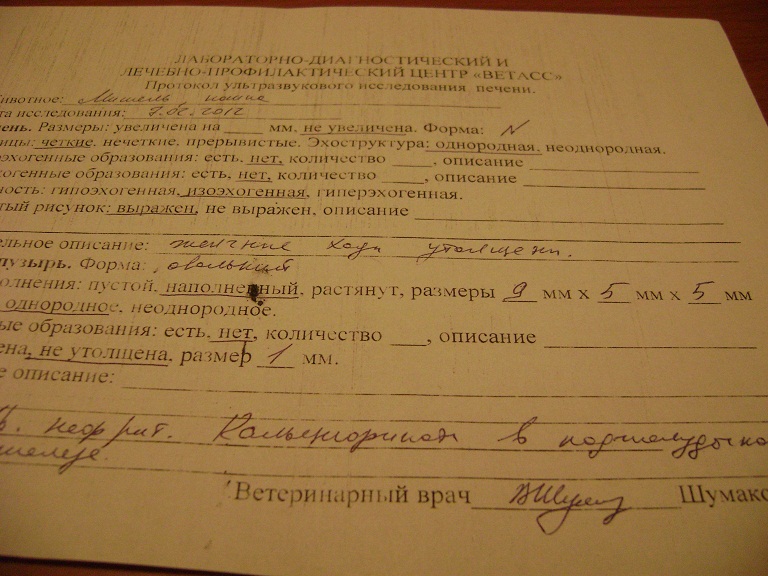 ЛАБОРАТОРНО-ДИАГНОСТИЧЕСКИЙ И
ЛЕЧЕБНО-ПРОФИЛАКТИЧЕСКИЙ ЦЕНТР «ВЕТАСС»
Протокол ультразвукового исследования печени.
ивотное: Мишель кошка
та исследования: 7.02.2012
ень. Размеры: увеличена на ____ мм, не увеличена. Форма: N
ицы: четкие, нечеткие, прерывистые. Эхоструктура: однородная, неоднородная.
эхогенные образования: есть, нет, количество ____, описание ____
огенные образования: есть, нет, количество ____, описание ____
ность: гипоэхогенная, изоэхогенная, гиперэхогенная.
тый рисунок: выражен, не выражен, описание ____
ельное описание: желчные ходы утолщены.
пузырь. Форма: овальный
олнения: пустой, наполненный, растянут, размеры 9 мм х 5 мм х 5 мм
однородное, неоднородное.
ые образования: есть, нет, количество ____, описание ____
ена, не утолщена, размер 1 мм.
е описание: ____
нефрит. в поджелудочно
железе.
Ветеринарный врач Шумако